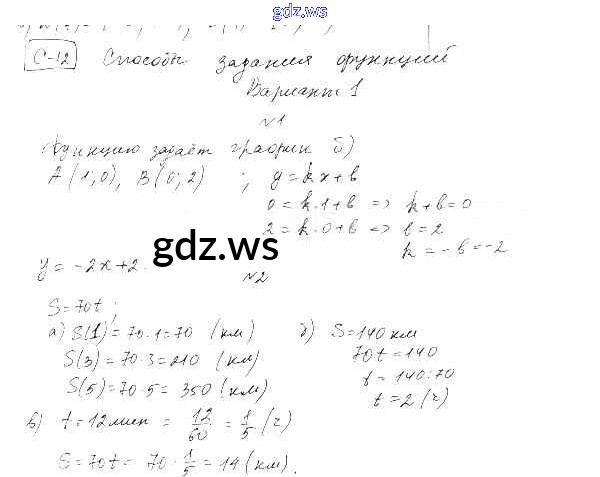 gdz.ws
С-12 Способы задания функций
Вариант 1
№1
Функцию задаёт график б)
A(1;0), B(0;2) ; y=kx+b
0=k·1+b => k+b=0
2=k·0+b => b=2
k=-b=-2
gdz.ws
y=-2x+2.
№2
S=70t;
а) S(1)=70·1=70 (км)
S(3)=70·3=210 (км)
S(5)=70·5=350 (км)
б) S=140 км
70t=140
t=140:70
t=2 (ч)
в) t=12мин = 12/60 = 1/5 (ч)
S=70t=70·1/5=14 (км).